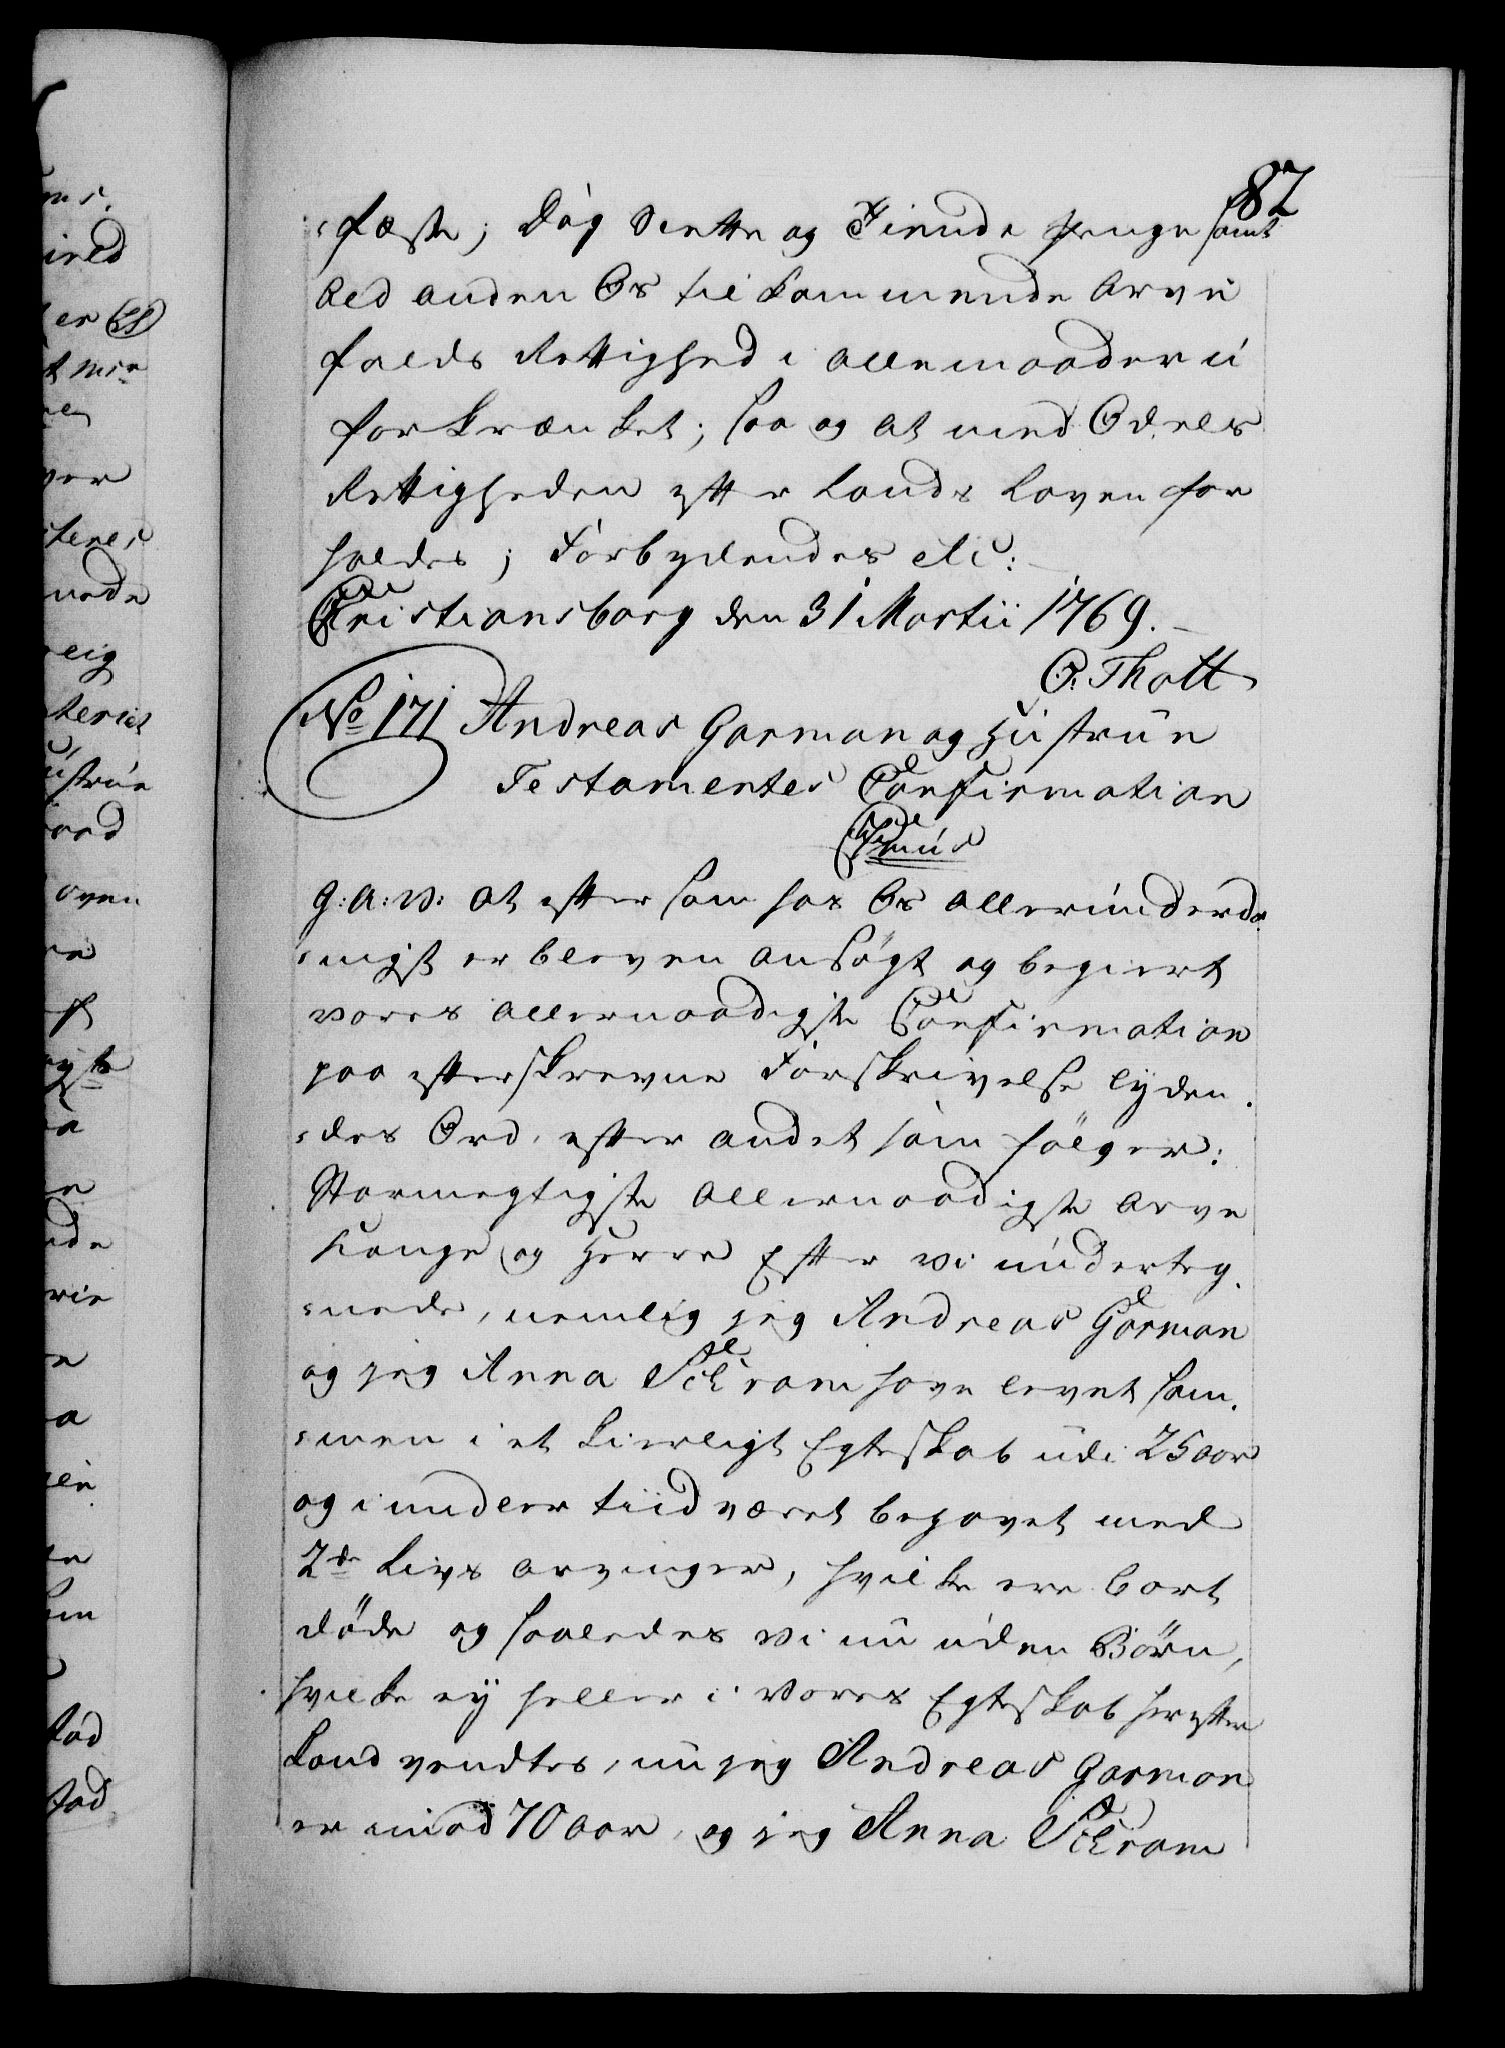 87
-fæste; dog Siette og Tiende Penge samt
Ald anden Os tilkommende Arve
falds Rettighed i allemaader u
forkrænket; saa og at med Odels
Rettigheden efter Lands Loven for
holdes; Forbydendes etc:
Christiansborg den 31 Martii 1769.
O. Thott
No 171 Andreas Garman og Hustrues
Testamentes Confirmation
G: A: V: at eftersom hos Os allerunderda
-nigst er bleven ansøgt og begiert
vores allernaadigste Confirmation
paa efterskrevne Forskrivelse lyden
-des Ord efter andet som følger:
Stormegtigste Allernaadigste Arve
Konge og Herre Efter vi underteg
-nede, nemlig jeg Andreas Garman
og jeg Anna Schram have levet sam
-men i et kierligt Egteskab udi 25 aar
og imidler tiid været begavet med
2de Livs arvinger, hvilke ere bort
døde og saaledes vi nu uden Børn,
hvilke ey heller i vores Egteskab herefter
kand ventes, nu jeg Andreas Garman
er imod 70 aar, og jeg Anna Schram